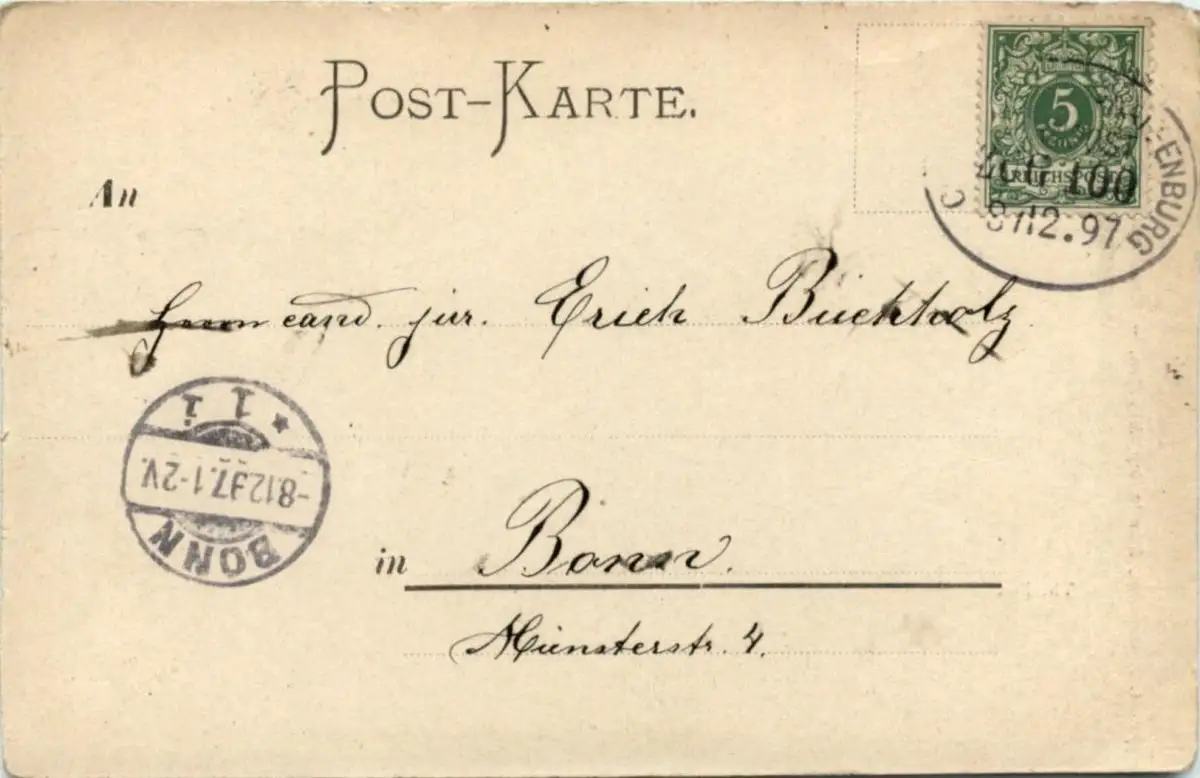 POST-KARTE.
5
PFENNIG
REICHSPOST
ZUG 100
8/12.97
An
Herrn cand. jur. Erich Buchholz
1 i
-8.12.97.1-2V.
BONN
in Bonn.
Münsterstr. 4.